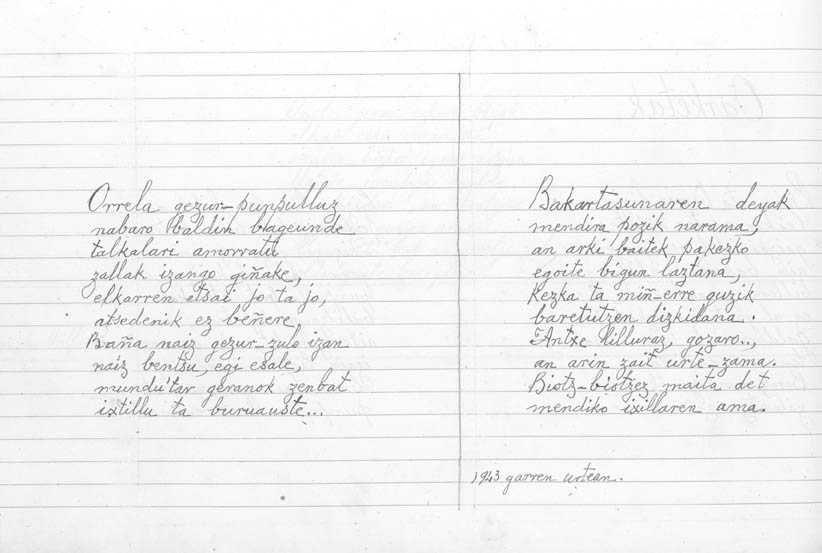 Orrela gezur-punpulluz
nabaro baldin bageunde
talkalari amorratu
zallak izango giñake,
elkarren etsai, jo ta jo,
atsedenik ez beñere.
Baña naiz gezur-zulo izan
naiz bentsu, egi esale,
mundu'tar geranok zenbat
ixtillu ta buruauste...
Bakartasunaren deyak
mendira pozik narama,
an arki baitek pakezko
egoite bigun laztana,
kezka ta miñ-erre guzik
baretutzen dizkidana.
Antxe killuraz, gozaro..,
an arin zait urte-zama.
Biotz-biotzez maita det
mendiko ixillaren ama.
1943 garren urtean.